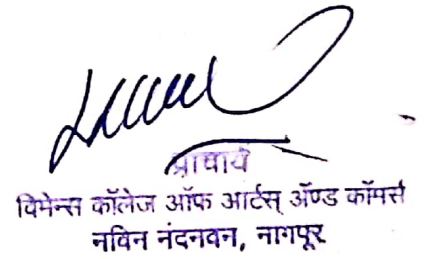 प्राचार्य
विमेन्स कॉलेज ऑफ आर्टस् ॲण्ड कॉमर्स
नविन नंदनवन, नागपूर